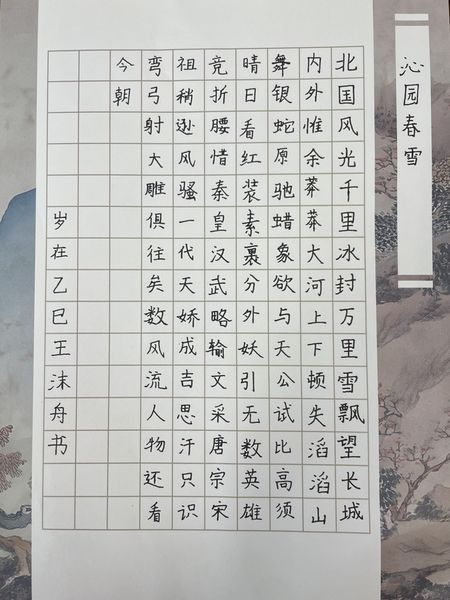 沁园春雪
北国风光千里冰封万里雪飘望长城
内外惟余莽莽大河上下顿失滔滔山
舞银蛇原驰蜡象欲与天公试比高须
晴日看红装素裹分外妖引无数英雄
竞折腰惜秦皇汉武略输文采唐宗宋
祖稍逊风骚一代天娇成吉思汗只识
弯弓射大雕俱往矣数风流人物还看
今朝
岁在乙巳王沫舟书